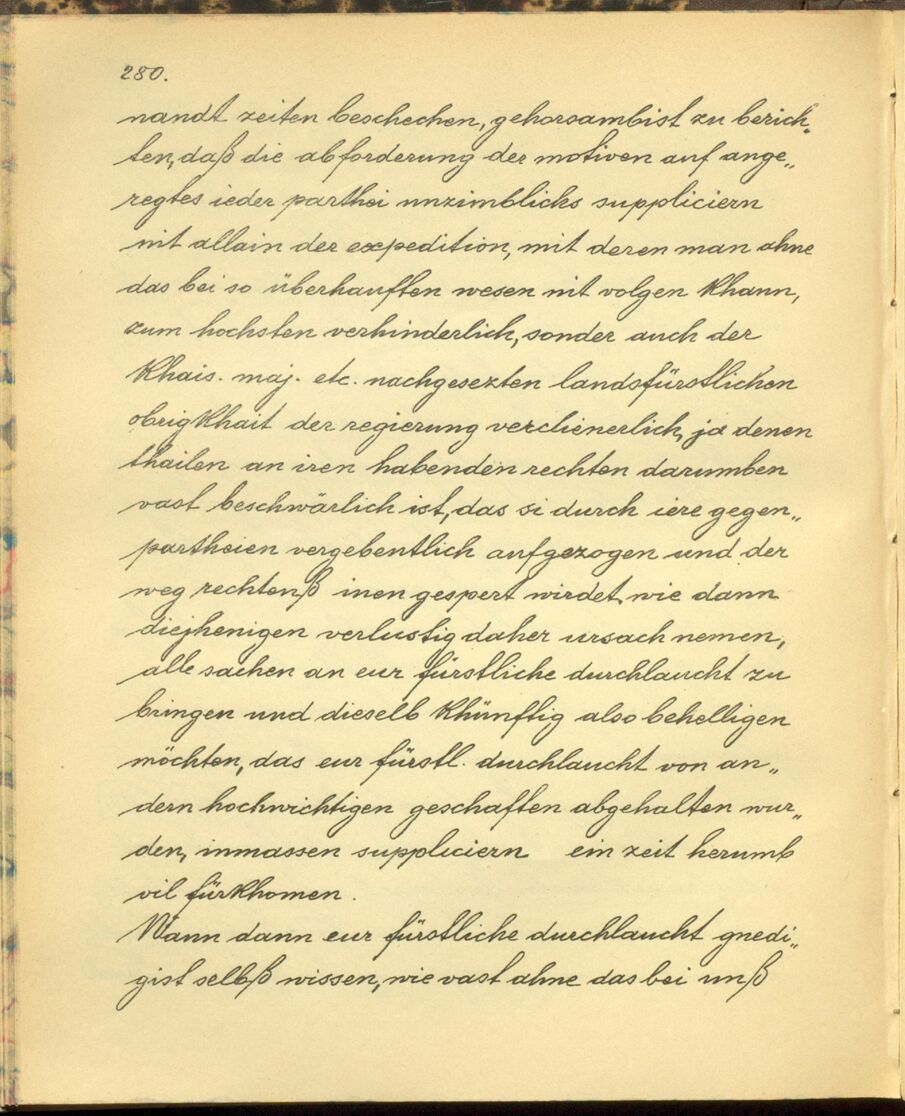 280.
nandt zeiten beschechen, gehorsambist zu berich„
ten, daß die abforderung der motiven auf ange„
regtes ieder parthei unzimblichs suppliciern
nit allain der expedition, mit deren man ohne
das bei so überhauften wesen nit volgen khann,
zum hochsten verhinderlich, sonder auch der
Khais. maj. etc. nachgesezten landsfürstlichen
obrigkhait der regierung verclienerlich, ja denen
thailen an iren habenden rechten darumben
vast beschwärlich ist, das si durch iere gegen„
partheien vergebentlich aufgezogen und der
weg rechtenß inen gespert wirdet, wie dann
diejhenigen verlustig daher ursach nemen,
alle sachen an eur fürstliche durchlaucht zu
bringen und dieselb khünftig also behelligen
möchten, das eur fürstl. durchlaucht von an„
dern hochwichtigen geschaften abgehalten wur„
den, inmassen suppliciern ein zeit herumb
vil fürkhomen.
Wann dann eur fürstliche durchlaucht gnedi„
gist selbß wissen, wie vast ohne das bei unß